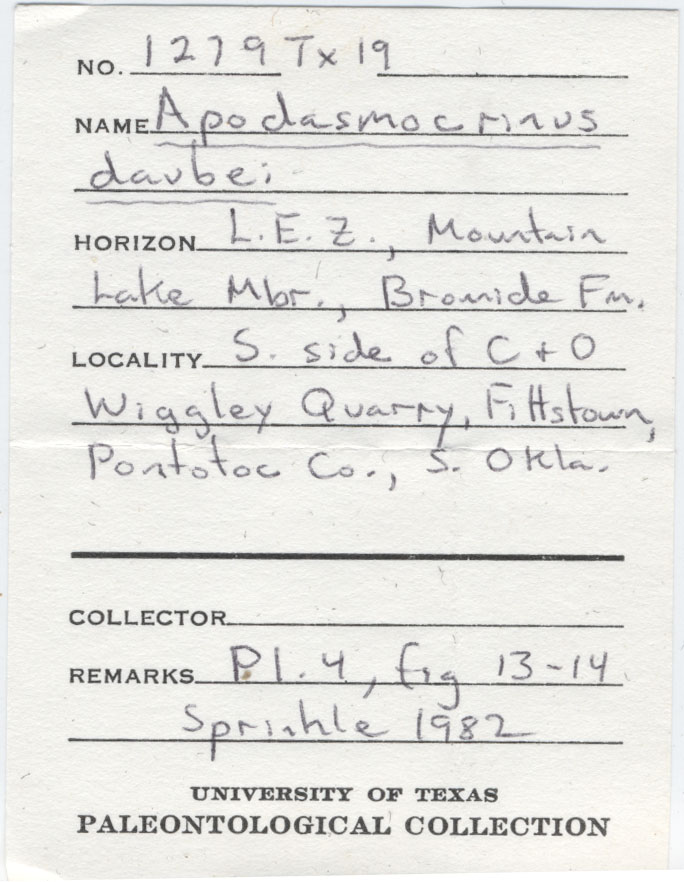 NO. 1279 Tx 19
NAME Apodasmocrinus
daubei
HORIZON L.E.Z., Mountain
Lake Mbr., Bromide Fm.
LOCALITY S. side of C + O
Wiggley Quarry, Fittstown,
Pontotoc Co., S. Okla.
COLLECTOR
REMARKS Pl. 4, fig 13-14
Sprinkle 1982
UNIVERSITY OF TEXAS
PALEONTOLOGICAL COLLECTION